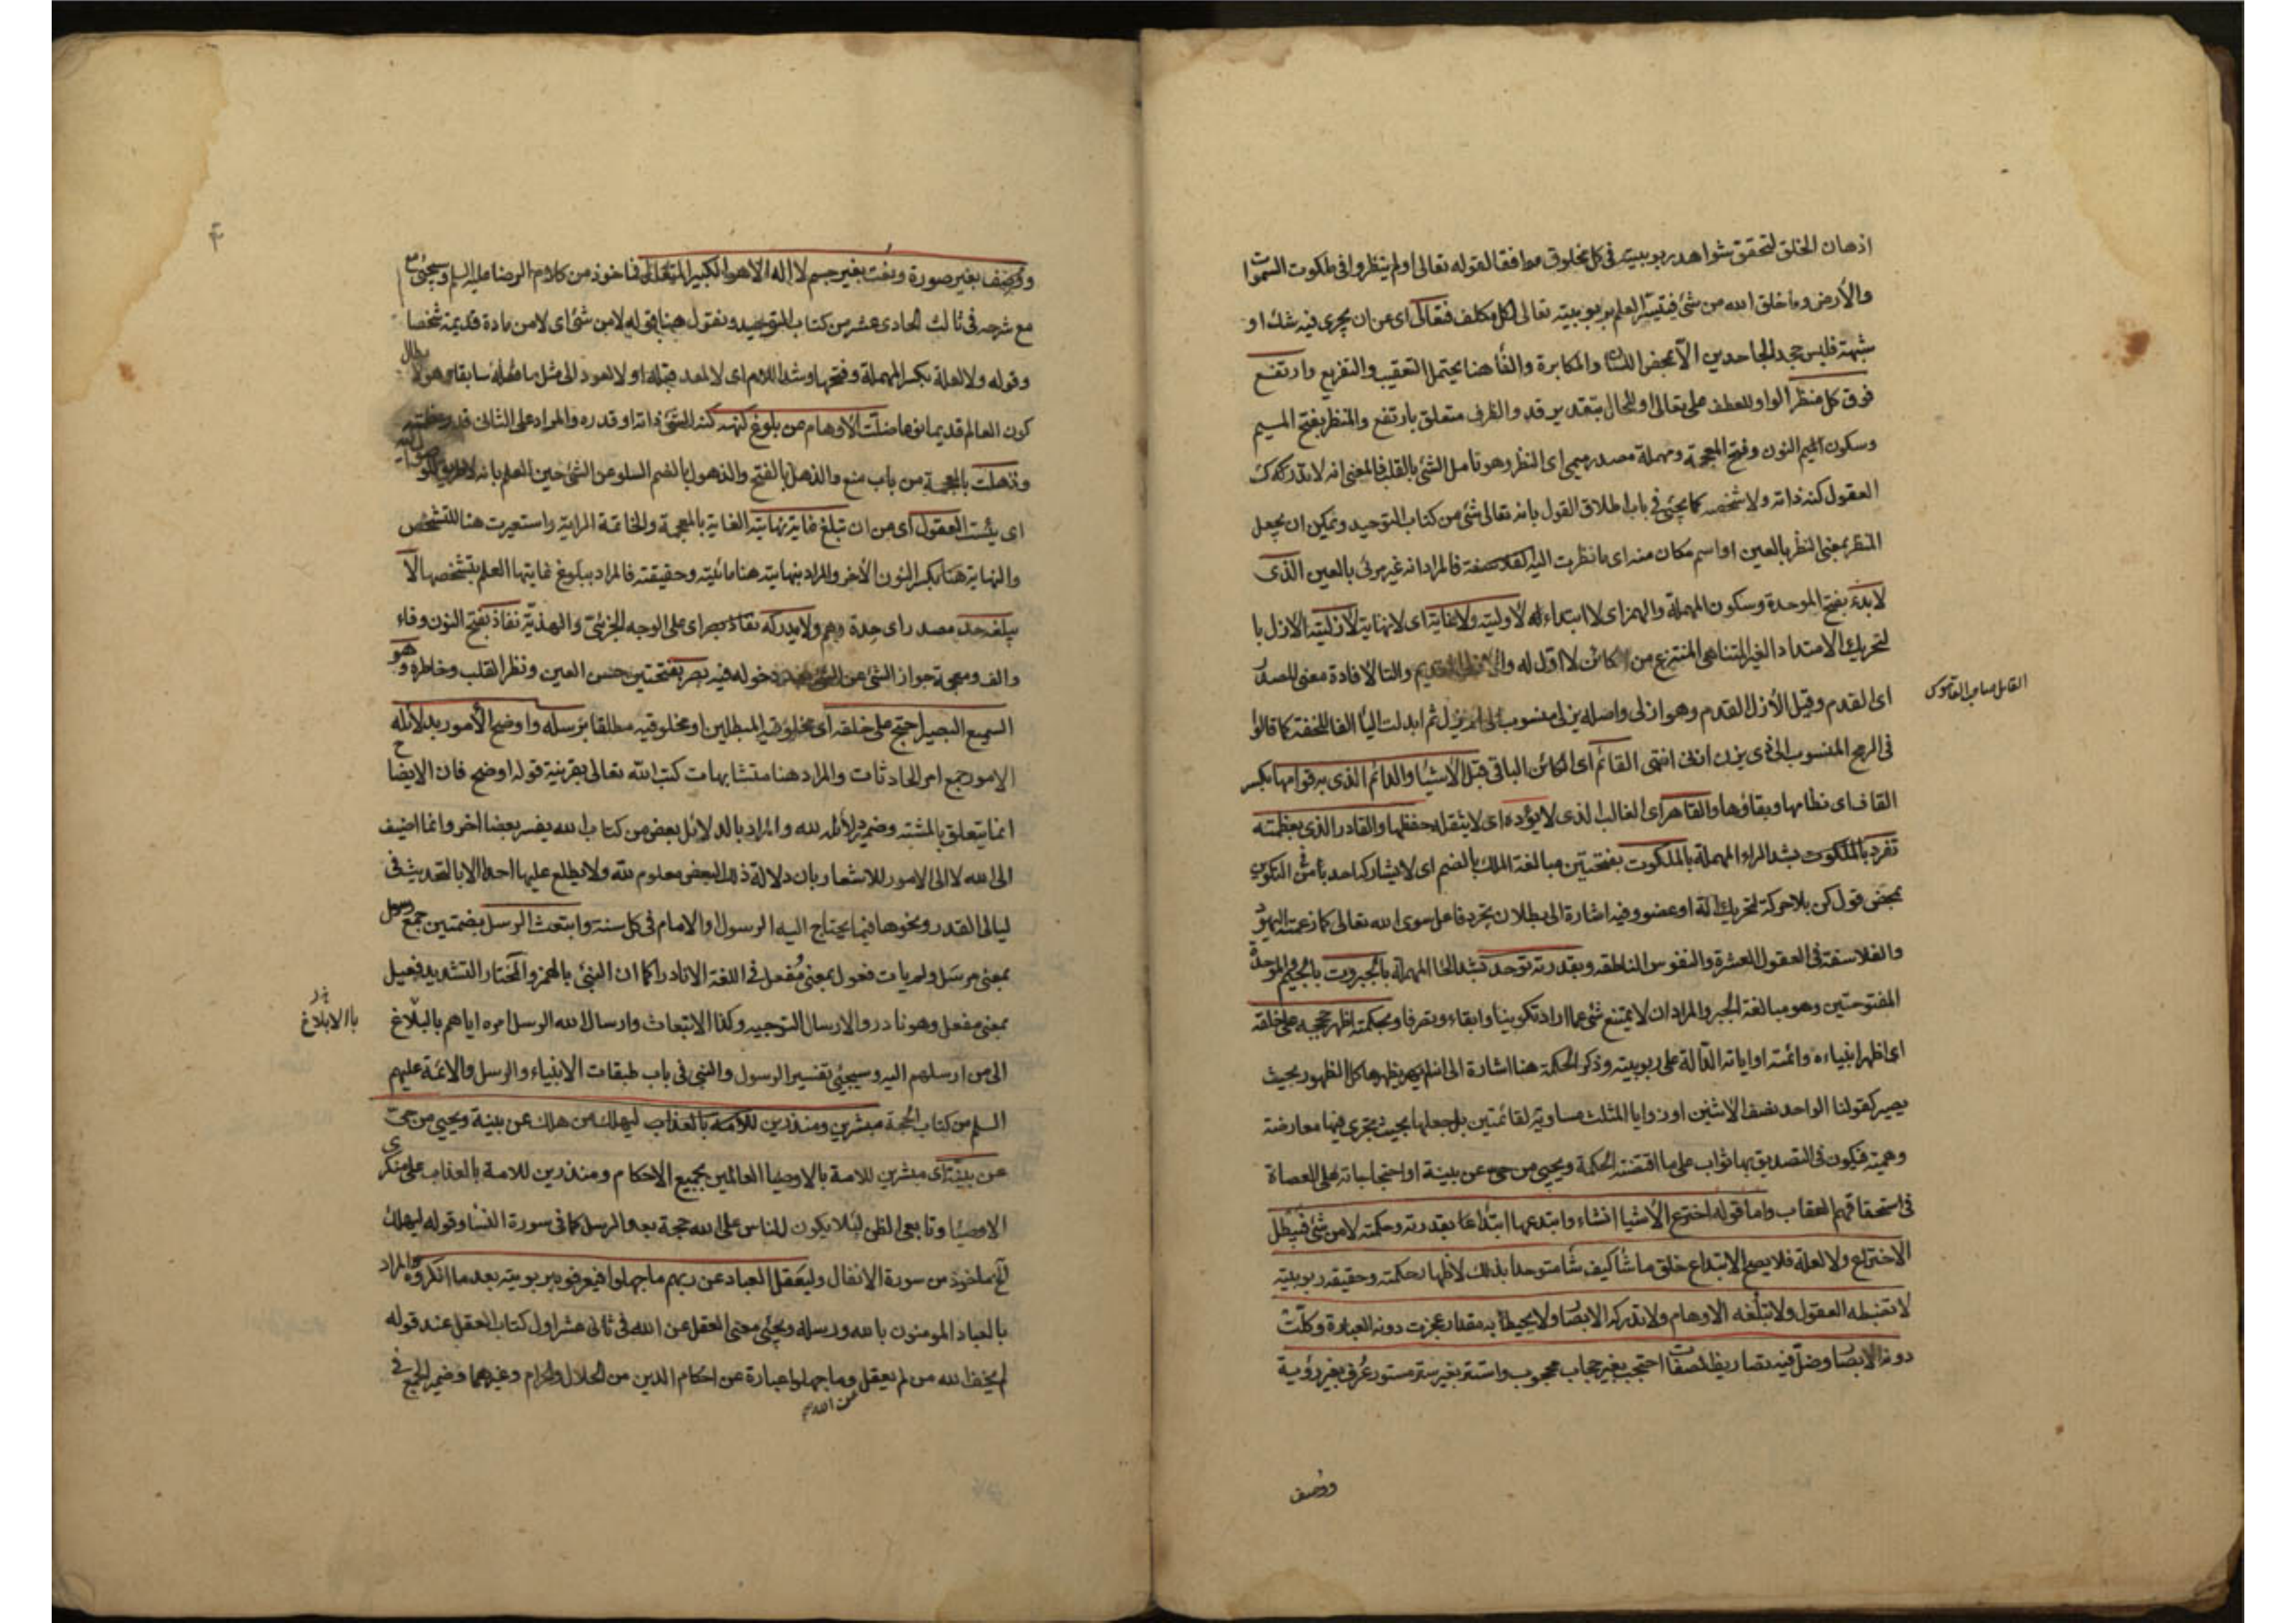 اذهان الخلق لتحقق شواهد ربوبيته في كل مخلوق موافقا لقوله تعالى اولم ينظروا في ملكوت السموات
والأرض وما خلق الله من شئ فيتيسّر العلم بربوبيته تعالى لكل مكلف فتعالى اى عن ان يجرى فيه شك او
شبهة فليس جحد الجاحدين الّا بمحض اللسان والمكابرة والفاء هنا يحتمل التعقيب والتفريع وارتفع
فوق كل منظر الواو للعطف على تعالى او للحال بتقدير قد والظرف متعلق بارتفع والمنظر بفتح الميم
وسكون الميم النون وفتح المعجمة ومهملة مصدر ميمى اى النظر وهو تامل الشئ بالقلب فالمعنى انه لا تدركه
العقول كنه ذاته ولا شخصه كما يجئ في باب اطلاق القول بانه تعالى شئ من كتاب التوحيد ويمكن ان يجعل
المنظر بمعنى النظر بالعين او اسم مكان منه اى ما نظرت اليه فالمراد انه غير مرئى بالعين الذى
لا بدء بفتح الموحدة وسكون المهملة والهمز اى لا ابتداء له لأوليته ولا غاية اى لا نهاية لأزليته الازل با
لتحريك الامتداد الغير المتناهى المنتزع من كائن لا اوّل له والتاء لافادة معنى المصدر
اى القدم وقيل الأزل القدم وهو ازلى واصله يزلى منسوب الى لم يزل ثم ابدلت الياء الفا للخفة كما قالوا
القائل صاحب القاموس
في الرمح المنسوب الى ذى يزن ازنى انتهى القائم اى الكائن الباقى قبل الأشياء والدائم الذى به قوامها بكسر
القاف اى نظامها وبقاؤها والقاهر اى الغالب الذى لا يؤده اى لا يثقله حفظها والقادر الذى بعظمته
تفرد بالملكوت بشد الراء المهملة بالملكوت بفتحتين مبالغة الملك بالضم اى لا يشاركه احد بأمر في التكوين
بمحض قول كن بلا حركة لتحريك آلة او عضو وفيه اشارة الى بطلان تجرد فاعل سوى الله تعالى كما زعمته اليهود
والفلاسفة في العقول العشرة والنفوس الناطقة وبقدرته توحد بشد الحاء المهملة بالجبروت بالجيم والموحدة
المفتوحتين وهو مبالغة الجبر والمراد ان لا يمتنع شئ عما اراد تكوينا وابقاء وتصرفا وبحكمته اظهر حججه على خلقه
اى اظهر انبياءه وائمته او اياته الدّالة على ربوبيته وذكر الحكمة هنا اشارة الى انه لم يظهرها كل الظهور بحيث
يصير كقولنا الواحد نصف الاثنين او زوايا المثلث مساوية لقائمتين بل جعلها بحيث تجرى فيها معارضة
وهمية فيكون في التصديق بها ثواب على ما اقتضته الحكمة ويحيى من حى عن بينة او احتجاجاته على العصاة
في استحقاقهم العقاب واما قوله اخترع الأشياء انشاء وابتدعها ابتداعا بقدرته وحكمته لا من شئ فيبطل
الاختراع ولا لعلة فلا يصح الابتداع خلق ما شاء كيف شاء متوحدا بذلك لاظهار حكمته وحقيقة ربوبيته
لا تضبطه العقول ولا تبلغه الاوهام ولا تدركه الابصار ولا يحيط به مقدار عجزت دونه العبارة وكلّت
دونه الابصار وضلّ فيه تصاريف الصفات احتجب بغير حجاب محجوب واستتر بغير ستر مستور عُرف بغير رؤية
ووصف
ووُصِف بغير صورة ونعت بغير جسم لا اله الا هو الكبير المتعال فماخوذ من كلام الرضا عليه السلم وسيجئ
مع شرحه في ثالث الحادى عشر من كتاب التوحيد ونقول هنا قوله لا من شئ اى لا من مادة قديمة شخصا
وقوله ولا لعلة بكسر المهملة وفتحها وشد اللام اى لا لمعد قبله او لا لعود الى مثل ما فعله سابقا
كون العالم قديما نوعا ضلّت الأوهام عن بلوغ كنهه كنه الشئ ذاته او قدره والمراد على الثانى قدر عظمته
وذهلت بالمعجمة من باب منع والذهل بالفتح والذهول بالضم السلو عن الشئ حين العلم بانه
اى يئست العقول اى من ان تبلغ غاية نهايته الغاية بالمعجمة والخاتمة الراية واستعيرت هنا للتشخص
والنهاية هنا بكسر النون الأخر والمراد بنهايته هنا مائيته وحقيقته فالمراد ببلوغ غايتها العلم بتشخصها لا
يبلغه حد مصدر اى حدة وهم ولا يدركه نفاذ بصر اى على الوجه الجزئى والهذيّة نفاذ بفتح النون وفاء
والف ومعجمة جواز الشئ عن الشئ بعد دخوله فيه بصر بفتحتين حس العين ونظر القلب وخاطره وهو
السميع البصير احتج على خلقه اى مخلوقيه المبطلين او مخلوقيه مطلقا برسله واوضح الأمور بدلائله
الامور جمع امر الحادثات والمراد هنا متشابهات كتب الله تعالى بقرينة قوله اوضح فان الايضاح
انما يتعلق بالمشتبه وضمير دلائله لله والمراد بالدلائل بعض من كتاب الله يفسر بعضا اخر وانما اضيف
الى الله لا الى الامور للاشعار بان دلالة ذلك البعض معلوم لله ولا يطلع عليها احدا الا بالتحديث في
ليالى القدر ونحوها فيما يحتاج اليه الرسول والامام في كل سنة وابتعث الرسل بضمتين جمع رسول
بمعنى مرسل ولم يات فعول بمعنى مُفعل في اللغة الا نادرا كما ان النبئ بالهمز والمختار التشديد فعيل
بمعنى مفعل وهو نادر والارسال التوجيه وكذا الابتعاث وارسال الله الرسل امره اياهم بالبلاغ
بالابلاغ
الى من ارسلهم اليه وسيجئ تفسير الرسول والنبى في باب طبقات الانبياء والرسل والائمة عليهم
السلم من كتاب الحجة مبشرين ومنذرين للأمة بالعذاب ليهلك من هلك عن بينة ويحيى من حى
عن بيّنة اى مبشرين للامة بالاوصياء العالمين بجميع الاحكام ومنذرين للامة بالعذاب على منكرى
الاوصياء وتابعى الظن لئلا يكون للناس على الله حجة بعد الرسل كما في سورة النساء وقوله ليهلك
الخ ماخوذ من سورة الانفال وليعقل العباد عن ربهم ما جهلوا فيعرفوه بربوبيته بعد ما انكروه والمراد
بالعباد المومنون بالله ورسله ويجئ معنى العقل عن الله في ثانى عشر اول كتاب العقل عند قوله
لم يخف الله من لم يعقل عن الله وما جهلوا عبارة عن احكام الدين من الحلال والحرام وغيرهما وضمير الجمع في